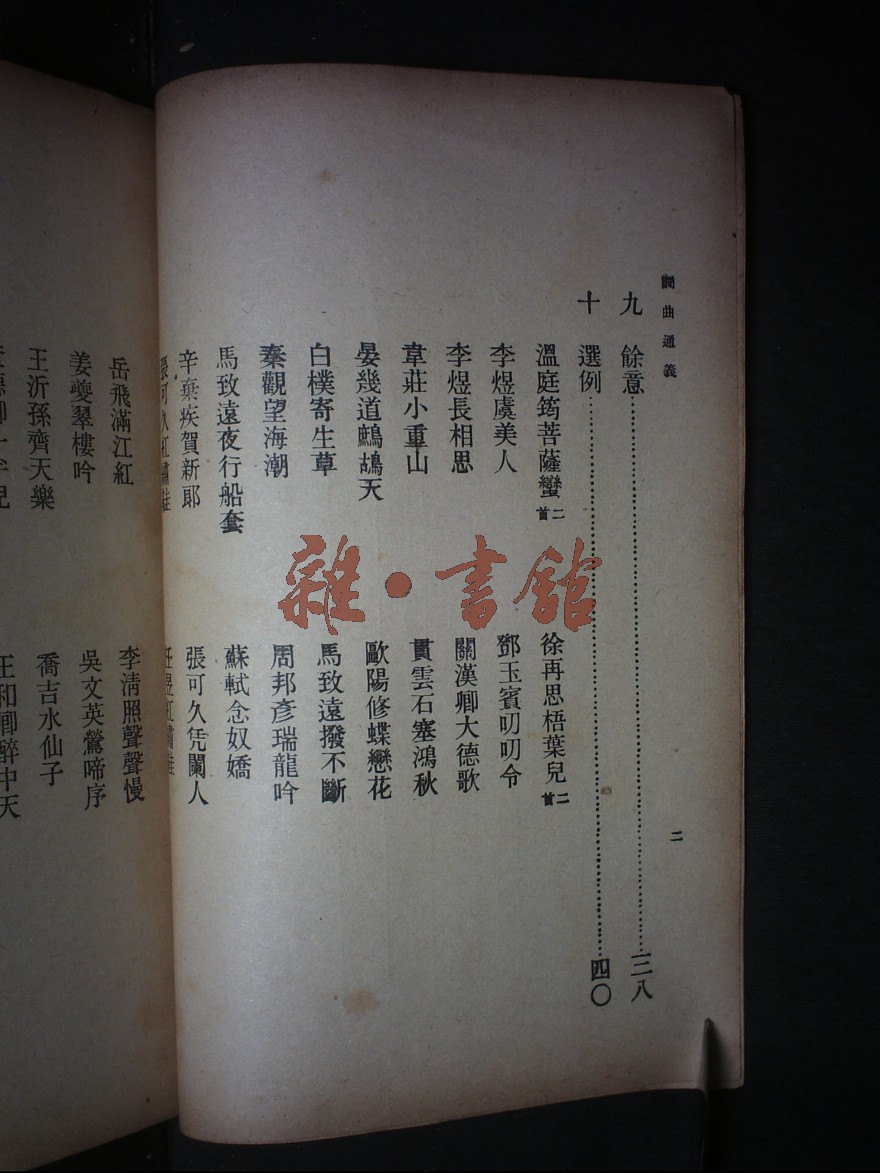 詞曲通義
二
九 餘意……三八
十 選例……四〇
溫庭筠菩薩蠻二首
徐再思梧葉兒二首
李煜虞美人
鄧玉賓叨叨令
李煜長相思
關漢卿大德歌
韋莊小重山
貫雲石塞鴻秋
晏幾道鷓鴣天
歐陽修蝶戀花
白樸寄生草
馬致遠撥不斷
秦觀望海潮
周邦彥瑞龍吟
馬致遠夜行船套
蘇軾念奴嬌
辛棄疾賀新郎
張可久凭闌人
張可久紅繡鞋
任昱紅繡鞋
岳飛滿江紅
李清照聲聲慢
姜夔翠樓吟
吳文英鶯啼序
王沂孫齊天樂
喬吉水仙子
王和卿醉中天
雜·書館